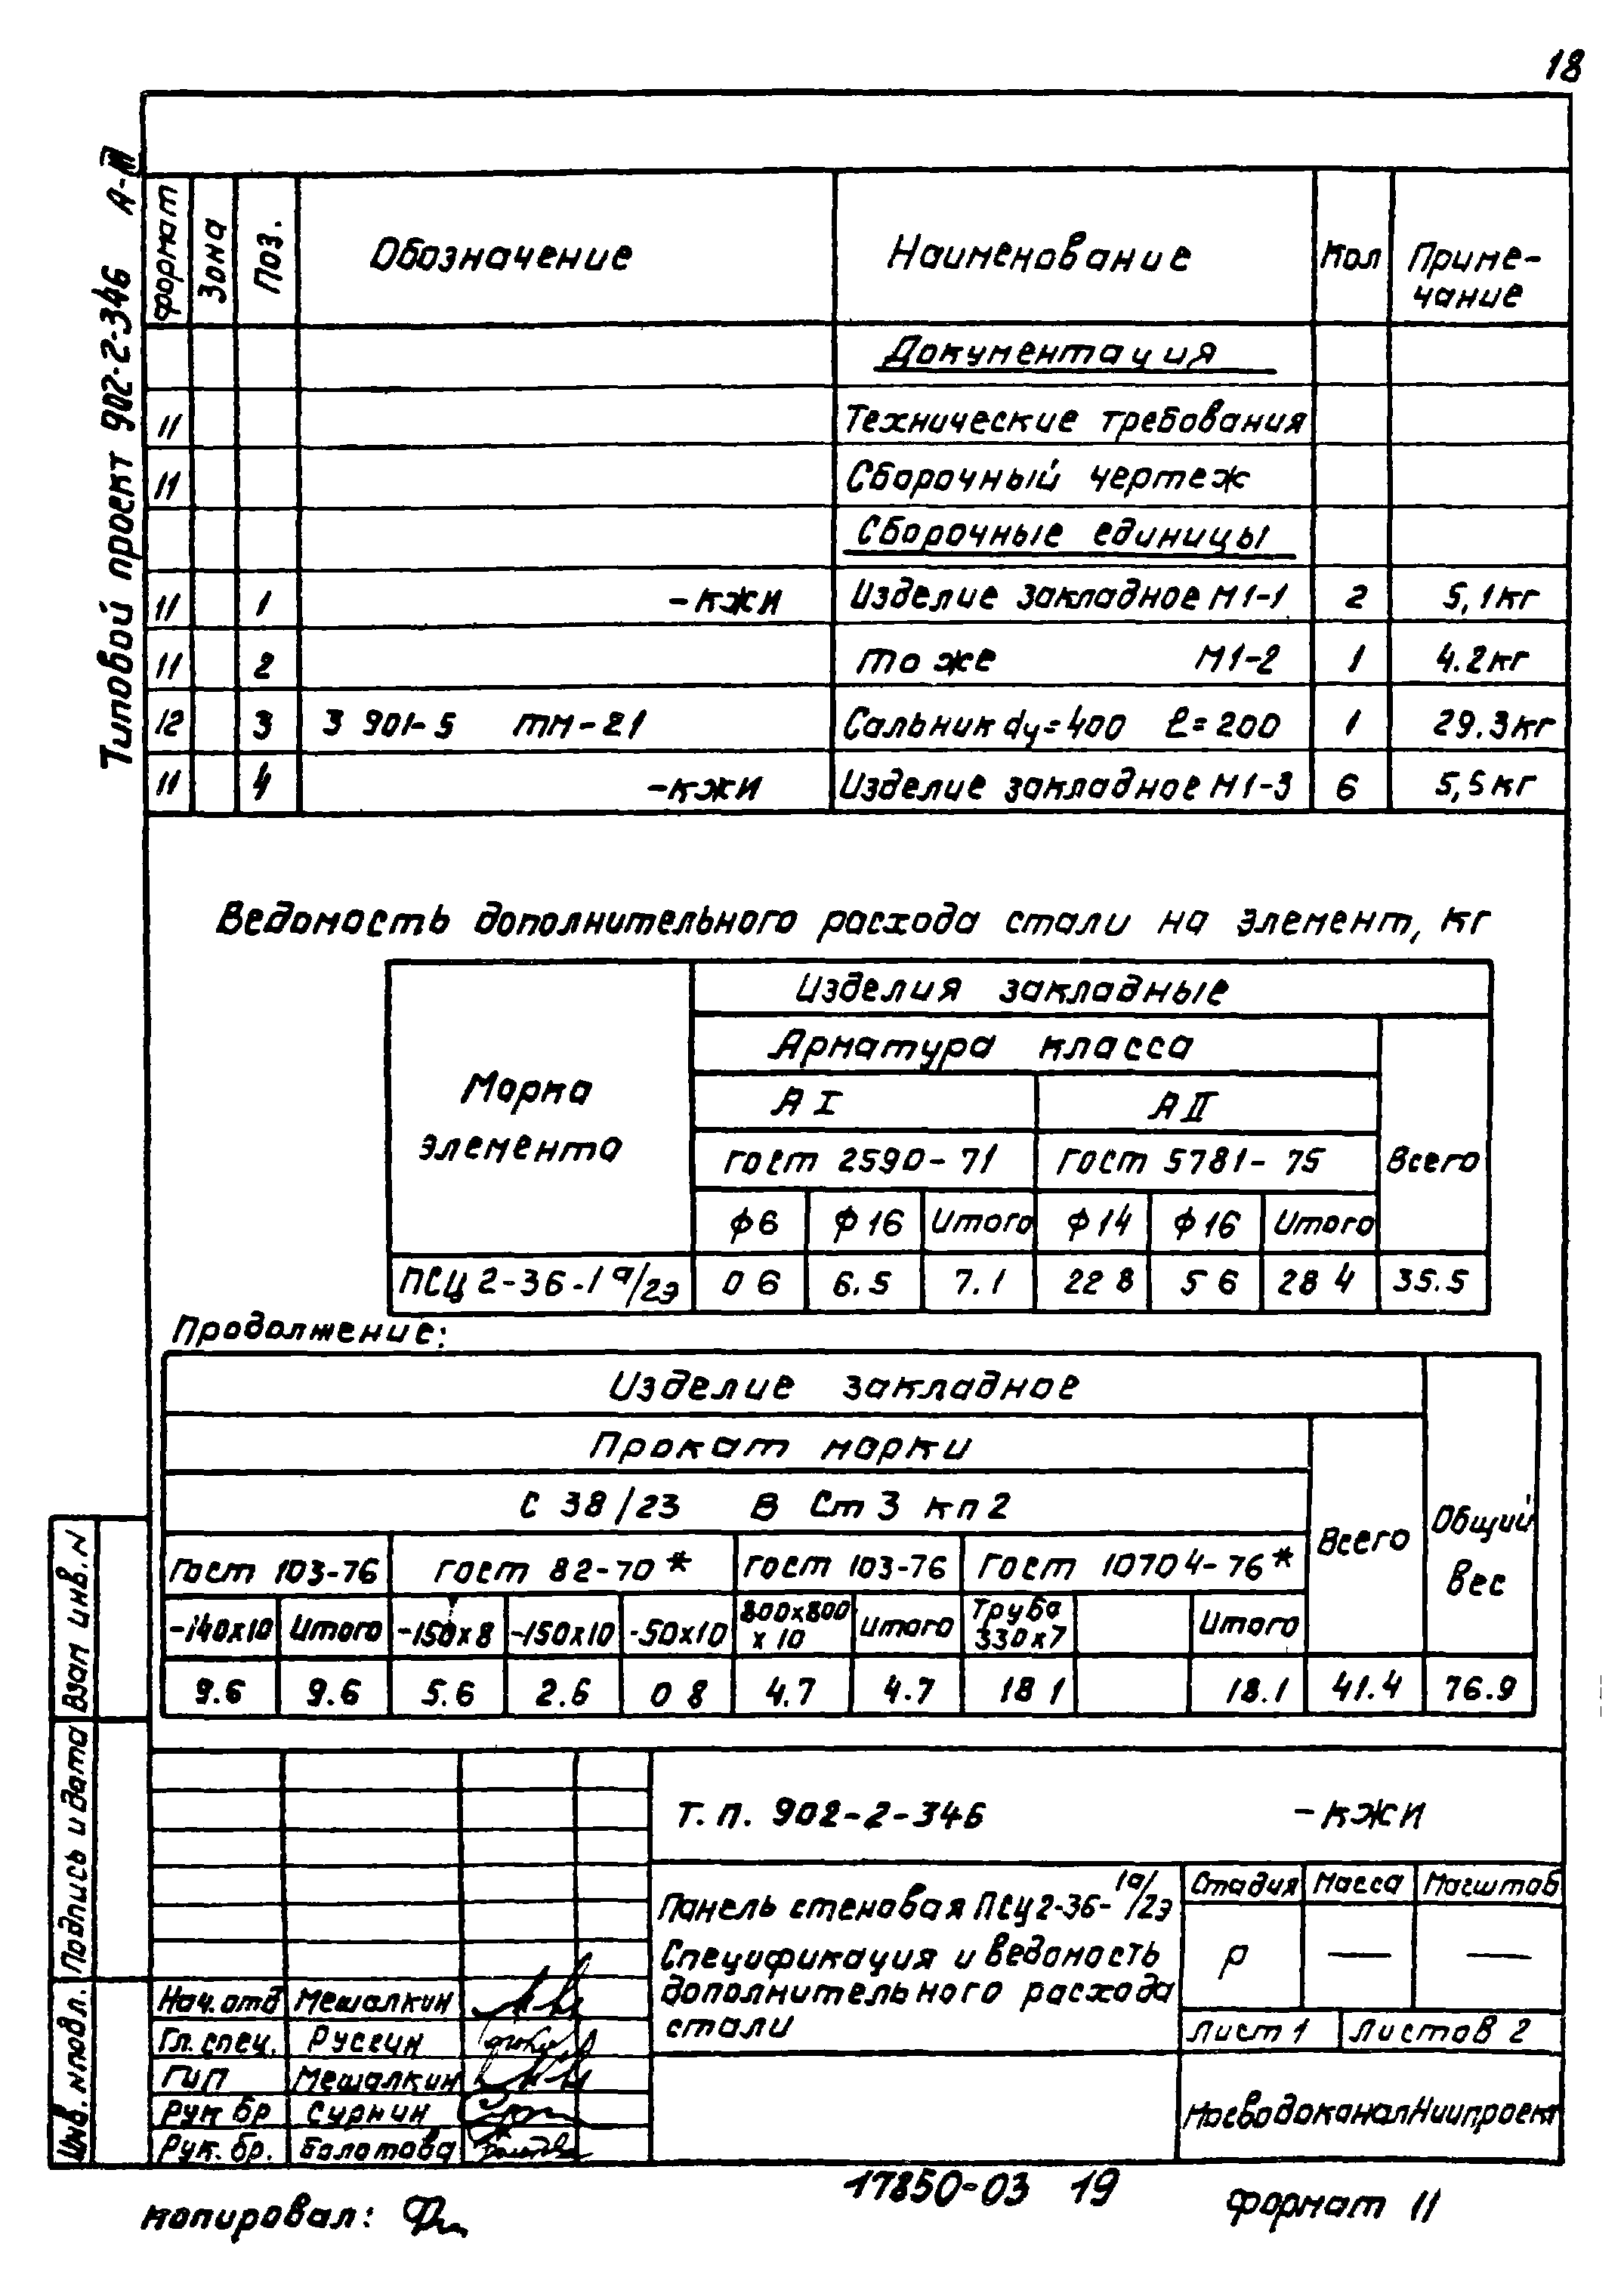 18
Типовой проект 902-2-346 А-III
формат Зона Поз. Обозначение Наименование Кол Приме-
чание
Документация
11 Технические требования
11 Сборочный чертеж
Сборочные единицы
11 1 -кжи Изделие закладное М1-1 2 5,1кг
11 2 то же М1-2 1 4.2кг
12 3 3 901-5 тм-21 Сальник dу=400 ℓ=200 1 29.3кг
11 4 -кжи Изделие закладное М1-3 6 5,5кг
Ведомость дополнительного расхода стали на элемент, кг
Марка
элемента
Изделия закладные
Арматура класса
А I А II
гост 2590-71 гост 5781-75 Всего
ф6 ф16 Итого ф14 ф16 Итого
ПСЦ 2-36-1а/2э 0 6 6.5 7.1 22 8 5 6 28 4 35.5
Продолжение:
Изделие закладное
Прокат марки
С 38/23 В Ст 3 кп 2
Всего
Общий
вес
гост 103-76 гост 82-70* гост 103-76 гост 10704-76*
-140х10 Итого -150х8 -150х10 -50х10 800х800
х 10 Итого Труба
330х7 Итого
9.6 9.6 5.6 2.6 0 8 4.7 4.7 18 1 18.1 41.4 76.9
Взам инв. N
Подпись и дата
Инв. Nподл.
т. п. 902-2-346 -кжи
Панель стеновая ПСЦ2-36-1а/2э
Спецификация и ведомость
дополнительного расхода
стали
Стадия Масса Масштаб
Р — —
Лист 1 Листов 2
МосводоканалНиипроект
Нач. отд Мешалкин
Гл. спец. Русеин
ГИП Мешалкин
Рук бр Сурнин
Рук. бр. Болотова
копировал:
17850-03 19
формат 11